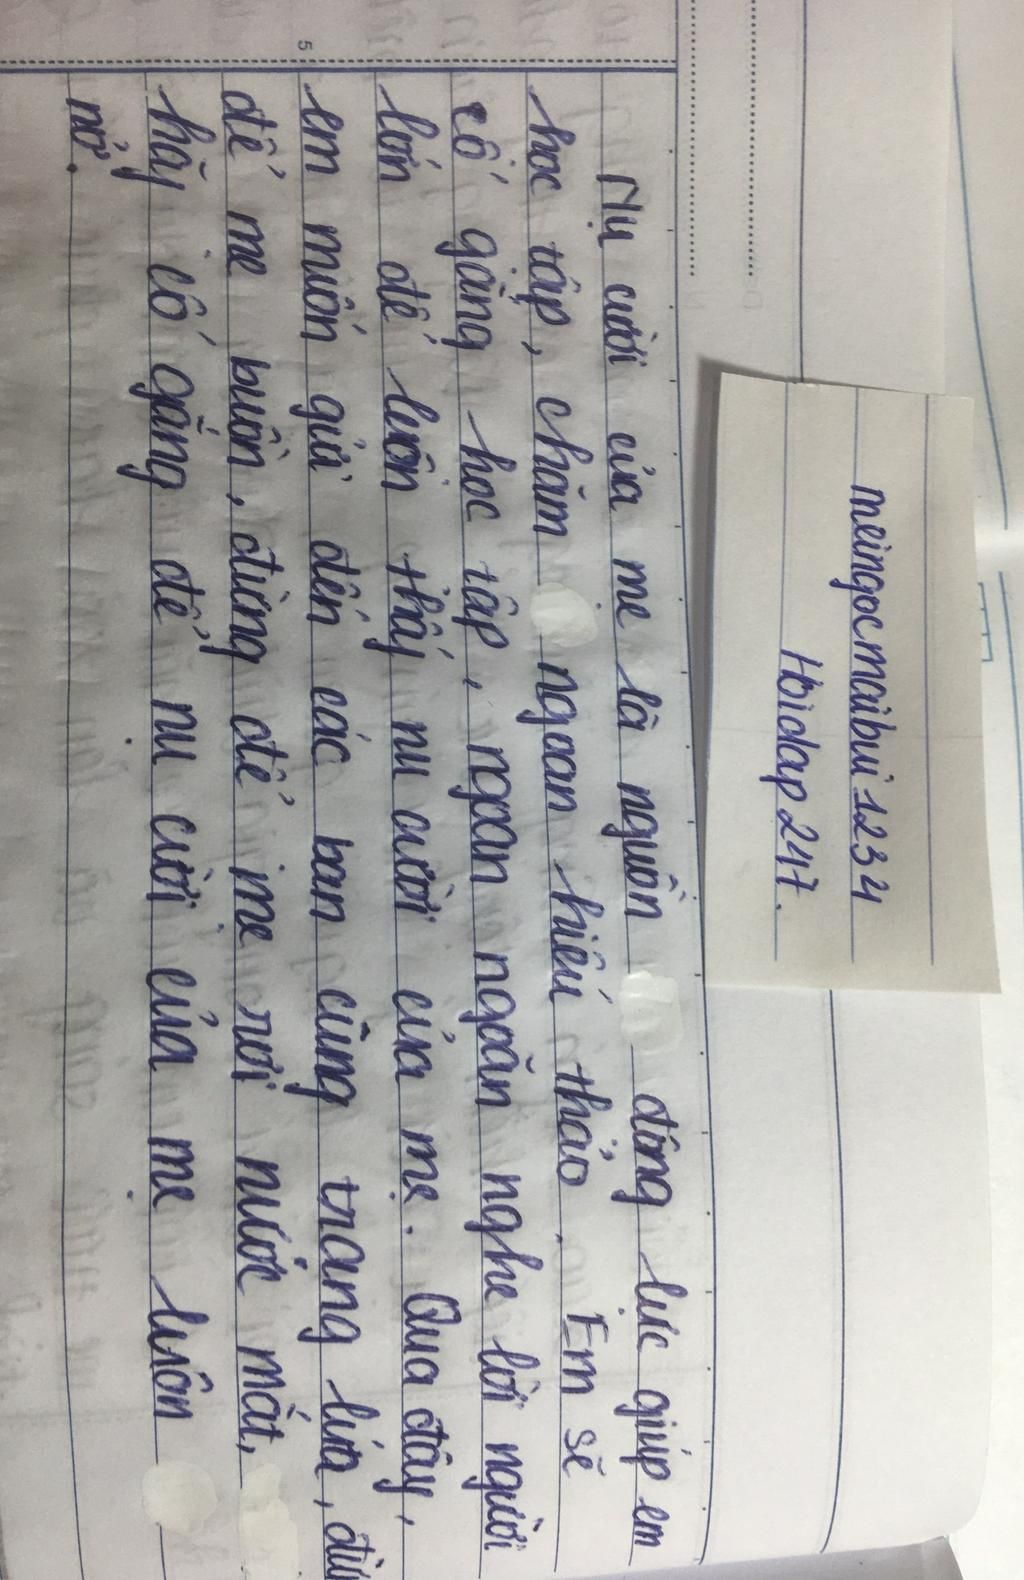 meingocmaibui1234
Hoidap247.
Nụ cười của mẹ là nguồn động lực giúp em
học tập, chăm ngoan hiếu thảo. Em sẽ
cố gắng học tập, ngoan ngoãn nghe lời người
lớn để luôn thấy nụ cười của mẹ. Qua đây,
em muốn gửi đến các bạn cùng trang lứa,
để mẹ buồn, đừng để mẹ rơi nước mắt,
hãy cố gắng để nụ cười của mẹ luôn
nở.
5